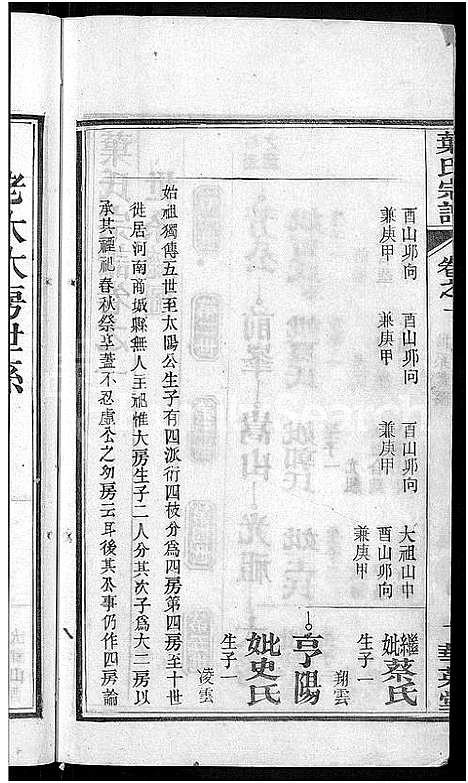 葉氏宗譜
卷之一
繼妣蔡氏
生子一
翔雲
亨陽
妣史氏
生子一
凌雲
大祖山中
酉山卯向
兼庚甲
酉山卯向
兼庚甲
酉山卯向
兼庚甲
酉山卯向
兼庚甲
始祖獨傳五世至太陽公生子有四派衍四枝分為四房第四房至十世
徙居河南商城縣無人主祀惟大房生子二人分其次子為大二房以
承其禋祀春秋祭享蓋不忍虛公之幼房云耳後其公事仍作四房論
老大大房世系